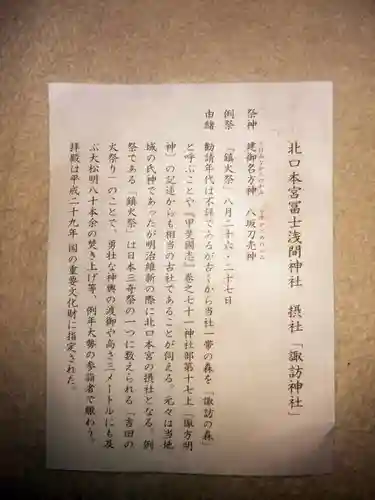 北口本宮冨士浅間神社 摂社「諏訪神社」
祭神 建御名方神 八坂刀売神
例祭 「鎮火祭」 八月二十六・二十七日
由緒 勧請年代は不詳であるが古くから当社一帯の森を『諏訪の森』
と呼ぶことや『甲斐國志』巻之七十一神社部第十七上「諏方明
神」の記述からも相当の古社であることが伺える。元々は当地
域の氏神であったが明治維新の際に北口本宮の摂社となる。例
祭である「鎮火祭」は日本三奇祭の一つに数えられる「吉田の
火祭り」のことで、勇壮な神輿の渡御や高さ三メートルにも及
ぶ大松明八十本余の焚き上げ等、例年大勢の参詣者で賑わう。
拝殿は平成二十九年 国の重要文化財に指定された。